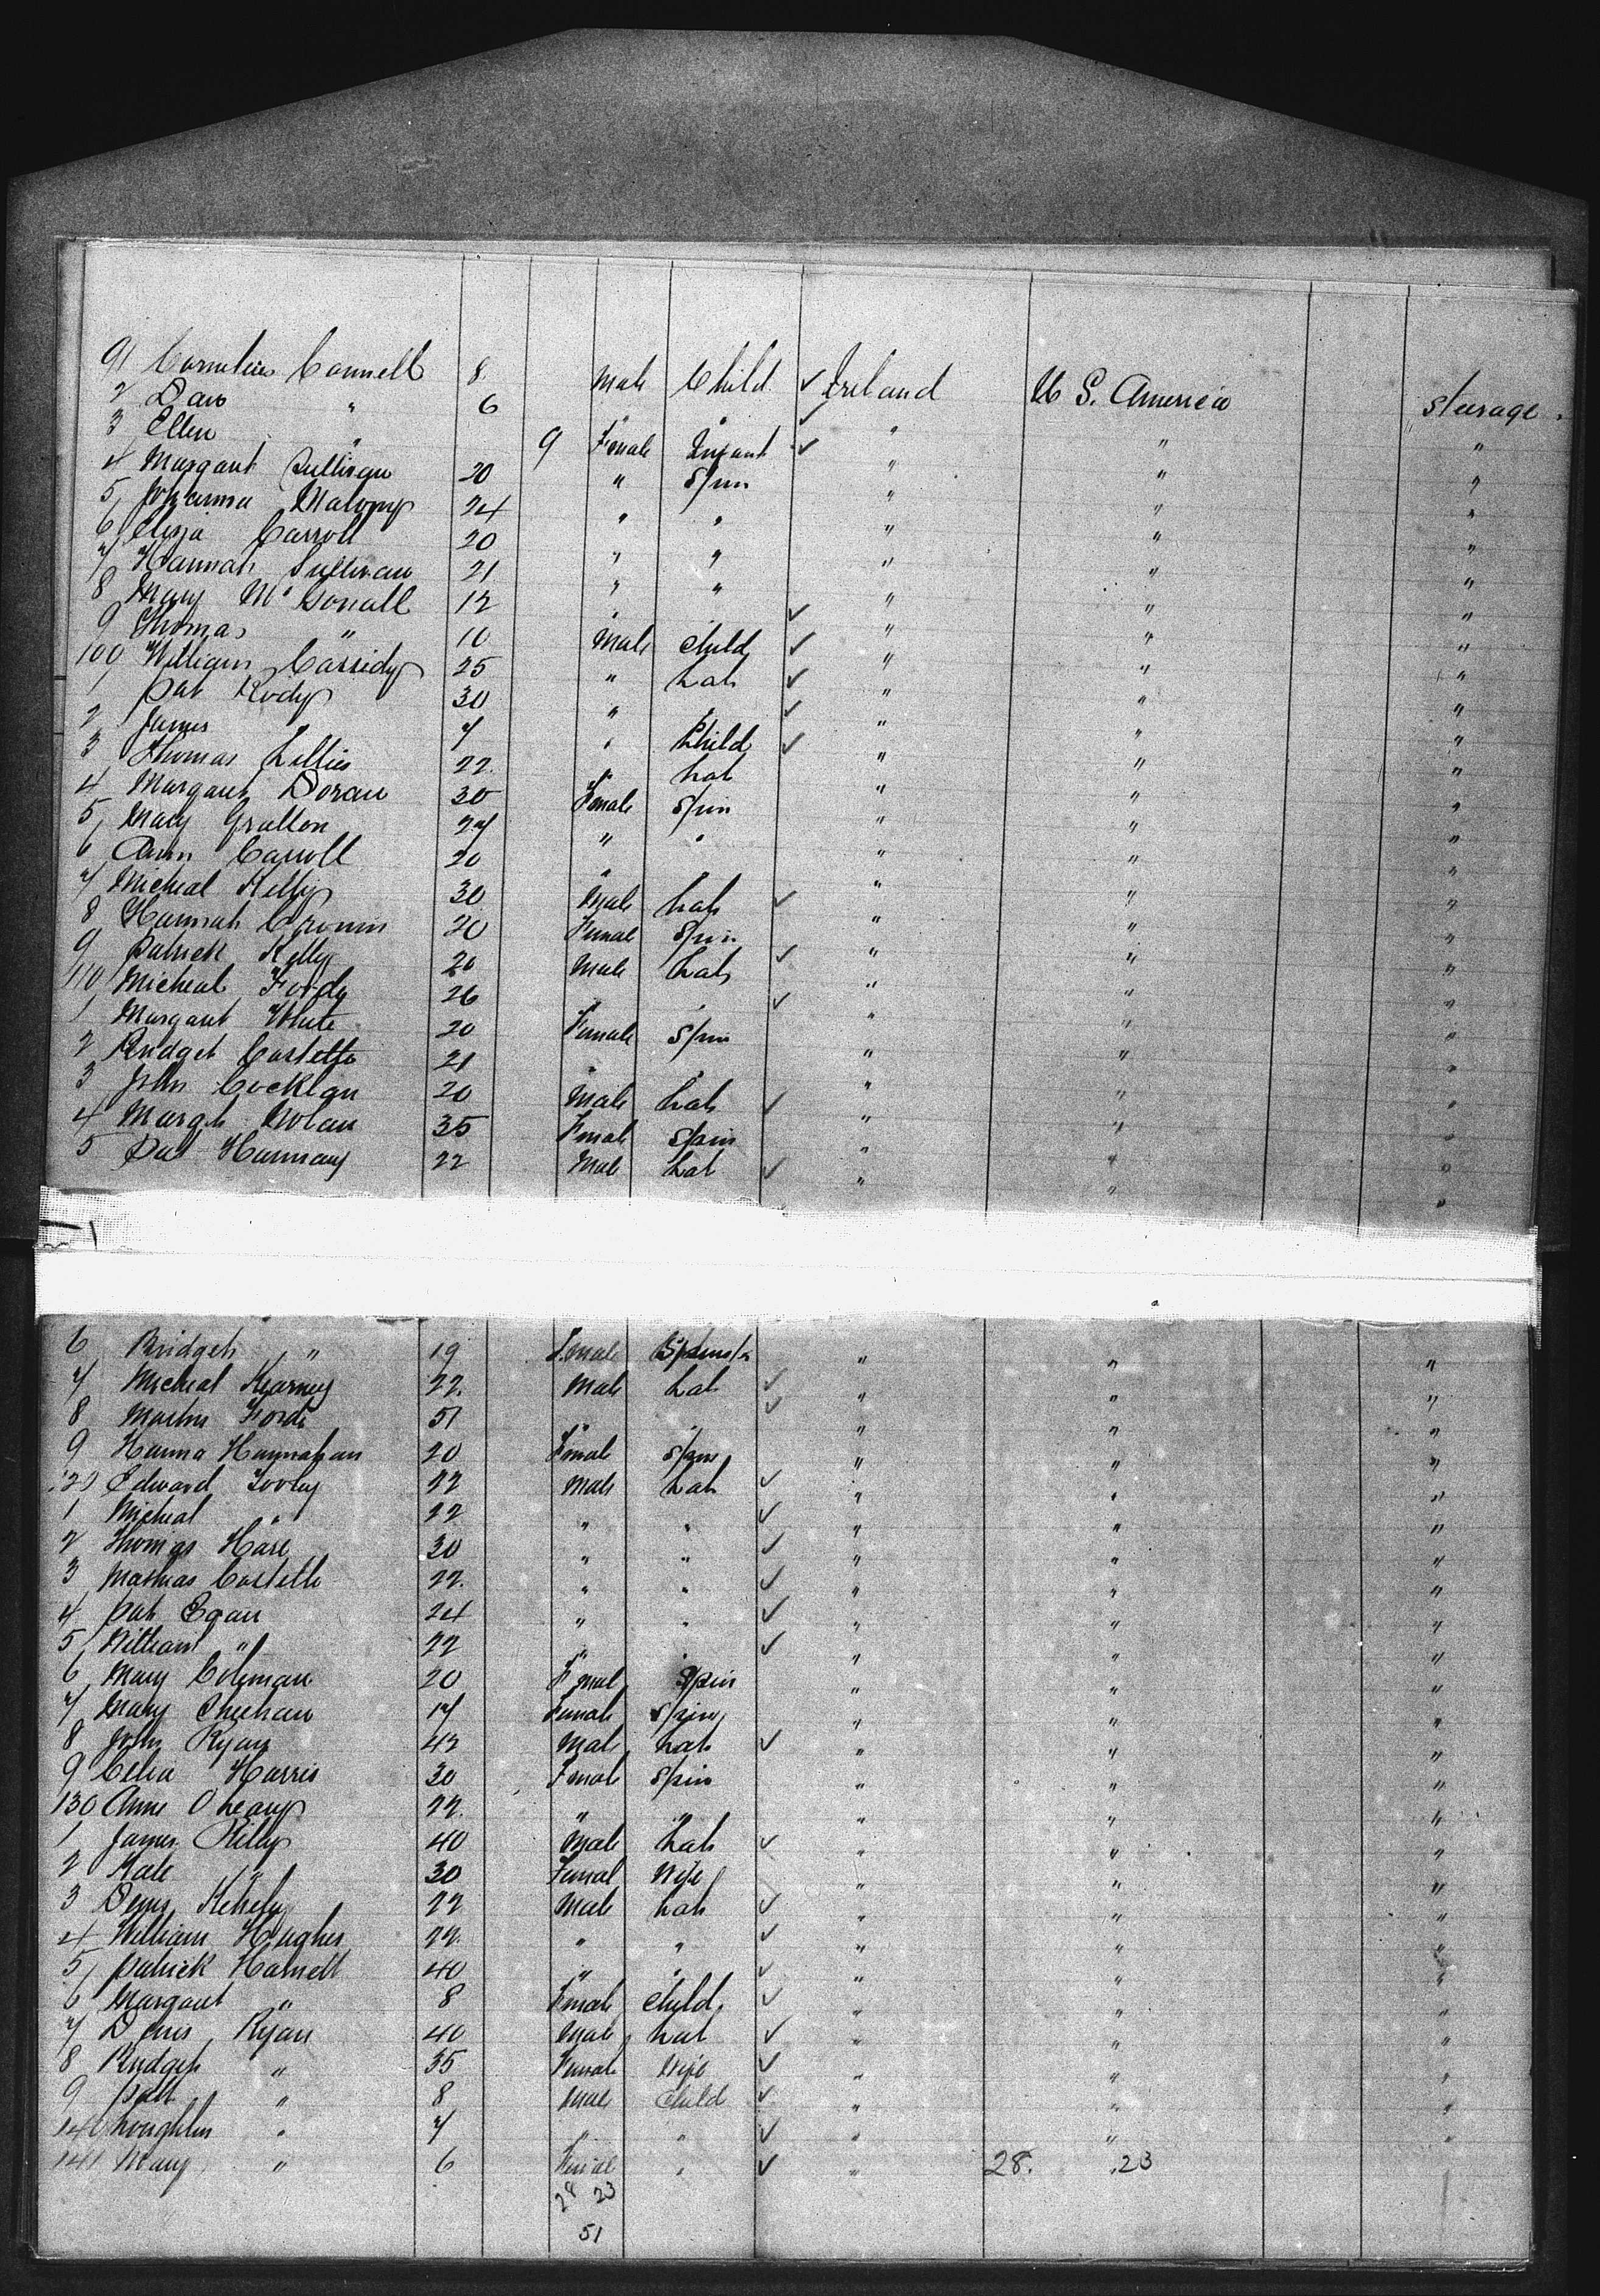 91 Cornelius Connell 8 Male Child ✓ Ireland U S. America Steerage
2 Dan " 6 " " ✓ " " "
3 Ellen " 9 Female Infant ✓ " " "
4 Margaret Sullivan 20 " Spin " " "
5 Johanna Malony 24 " " " " "
6 Eliza Carroll 20 " " " " "
7 Hannah Sullivan 21 " " " " "
8 Mary Mc 12 " ✓ " " "
9 Thomas " 10 Male Child ✓ " " "
100 William Cassidy 25 " Lab ✓ " " "
1 Pat Rody 30 " " ✓ " " "
2 James 7 " Child ✓ " " "
3 Thomas Lillis 22 " Lab " " "
4 Margaret Doran 30 Female Spin " " "
5 Mary Gratton 27 " " " " "
6 Ann Carroll 20 " " " " "
7 Micheal Kelly 30 Male Lab ✓ " " "
8 Hannah Cronin 20 Female Spin " " "
9 Patrick Kelly 20 Male Lab ✓ " " "
110 Micheal Fordy 26 " " ✓ " " "
1 Margaret White 20 Female Spin " " "
2 Bridget Costello 21 " " " " "
3 John Cocklan 20 Male Lab ✓ " " "
4 Margt Nolan 35 Female Spin " " "
5 Pat Hannany 22 Male Lab ✓ " " "
6 Bridget " 19 Female Spinster " " "
7 Micheal Kearney 22 Male Lab ✓ " " "
8 Martin Forde 51 " " ✓ " " "
9 Hanna Hannahan 20 Female Spin " " "
120 Edward Tooley 22 Male Lab ✓ " " "
1 Micheal " 22 " " ✓ " " "
2 Thomas Hare 30 " " ✓ " " "
3 Mathias Costello 22 " " ✓ " " "
4 Pat Egan 24 " " ✓ " " "
5 William " 22 " " ✓ " " "
6 Mary Coleman 20 Femal Spin " " "
7 Mary Sheehan 17 Female Spin " " "
8 John Ryan 42 Male Lab ✓ " " "
9 Celia Harris 30 Female Spin " " "
130 Anne 22 " " " " "
1 James Kelly 40 Male Lab ✓ " " "
2 Kate " 30 Femal Wife " " "
3 Denis 22 Male Lab ✓ " " "
4 William Hughes 22 " " ✓ " " "
5 Patrick Harnett 40 " " ✓ " " "
6 Margaret " 8 Female Child ✓ " " "
7 Denis Ryan 40 Male Lab ✓ " " "
8 Bridget " 35 Female Wife ✓ " " "
9 Patt " 8 Male Child ✓ " " "
140 Loughlin " 7 " " ✓ " " "
141 Mary " 6 Femal " ✓ " 28. 23
28 23
51